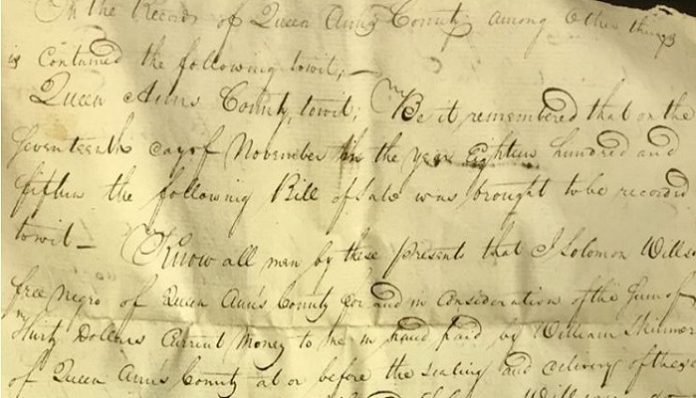 In the Records of Queen Ann's County among other things
is contained the following towit, —
Queen Anns County, towit; Be it remembered that on the
Seventeenth day of November in the year Eighteen hundred and
fifteen the following Bill of Sale was brought to be recorded
towit — Know all men by these presents that I Solomon Wills
free Negro of Queen Ann's County for and in consideration of the Sum of
Thirty Dollars Current Money to me in hand paid by William Skinner
of Queen Ann's County at or before the sealing and delivery of these